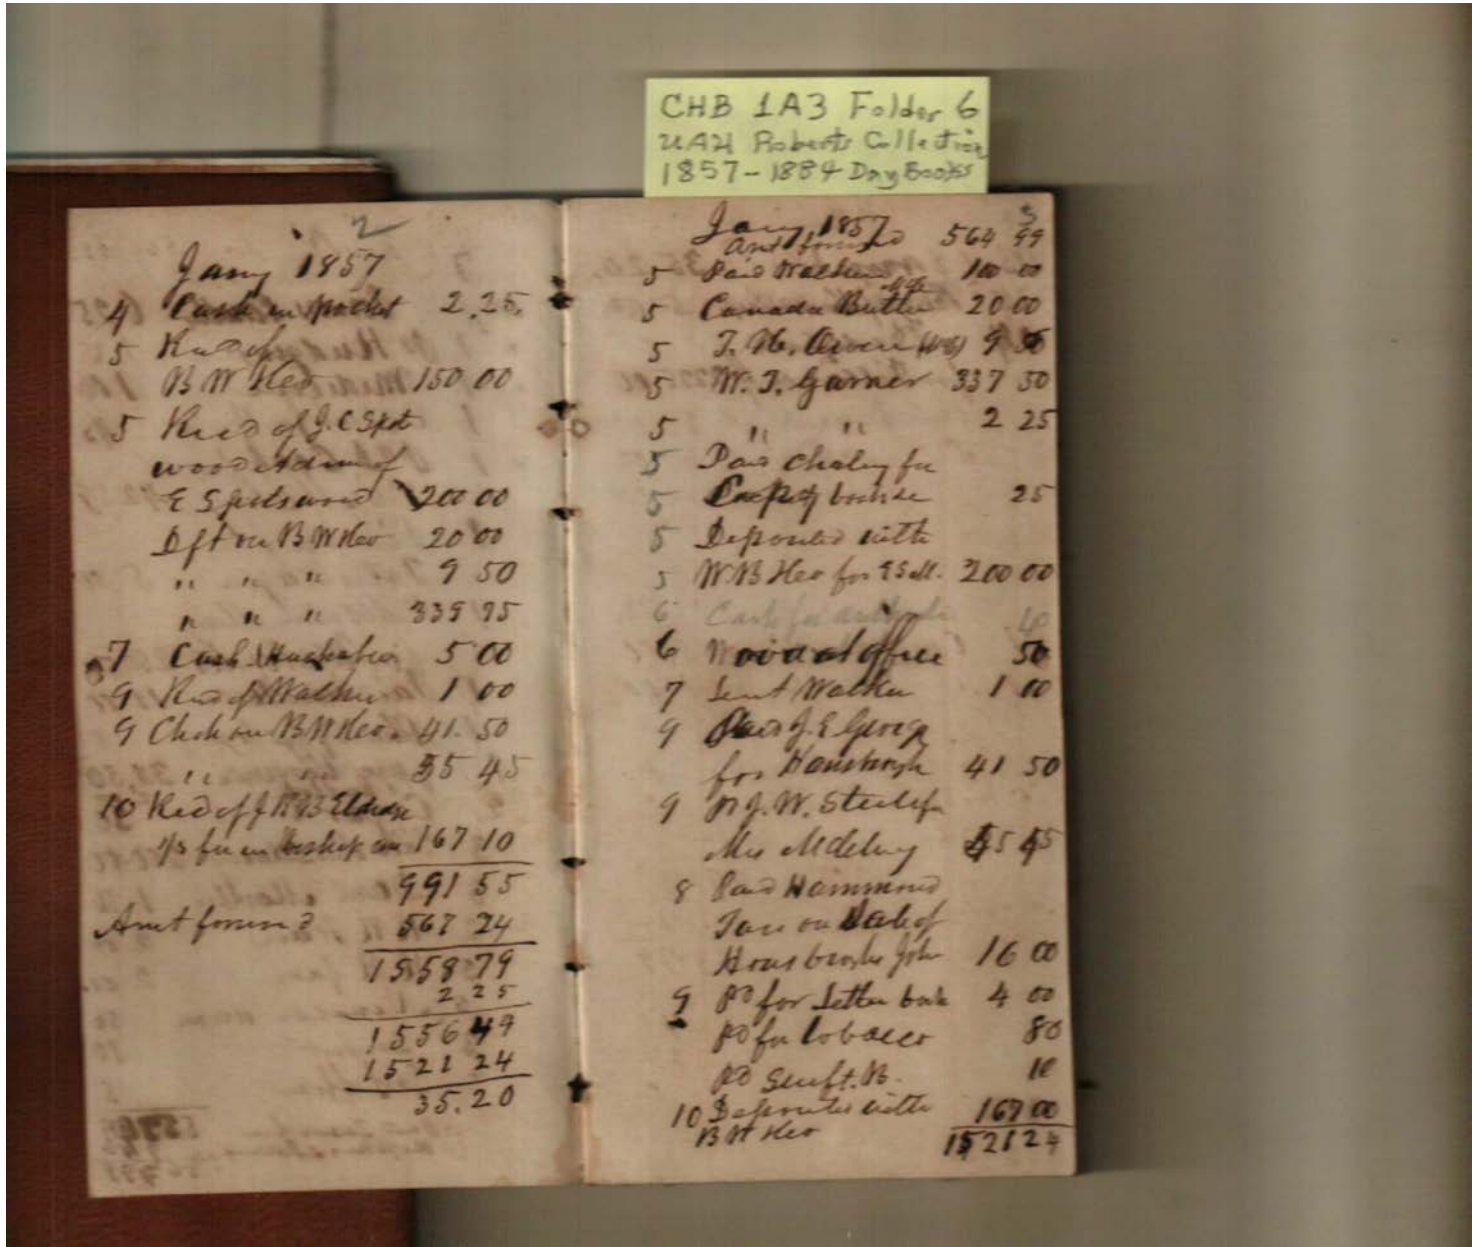 CHB 1A3 Folder 6
UAH Roberts Collection
1857-1884 Day Books
2
Jany 1857
4 Cash in pocket 2.25.
5 Recd of
B W 150 00
5 Recd of J. C Spot
wood Adm of
E Spotswood 200 00
Dft on B W 20 00
" " " 9 50
" " " 339 75
7 Cash 5 00
9 Recd of Walker 1 00
9 Chck on B W 41.50
" " 55 45
10 Recd of J
for 167 10
991 55
Amt forward 567 24
1558 79
2 25
1556 49
1521 24
35.20
3
Jany 1857
Amt forward 564 99
5 Paid Walker 100 00
5 Canada Butler 20 00
5 T. H. Owen 9 50
5 W. J. Garner 337 50
5 " " 2 25
5 Paid Charley for
5 25
5 Deposited with
5 W. B for 200 00
6 Cash for
6 Wood at office 50
7 Lent Walker 1 00
9 Paid J. E George
for 41 50
9 Pd J. W. Steele for
Mrs 55 45
8 Paid Hammond
Taxes on
John 16 00
9 Pd for Letter book 4 00
Pd for tobacco 80
Pd B. 10
10 Deposited with 167 00
B W 1521 24